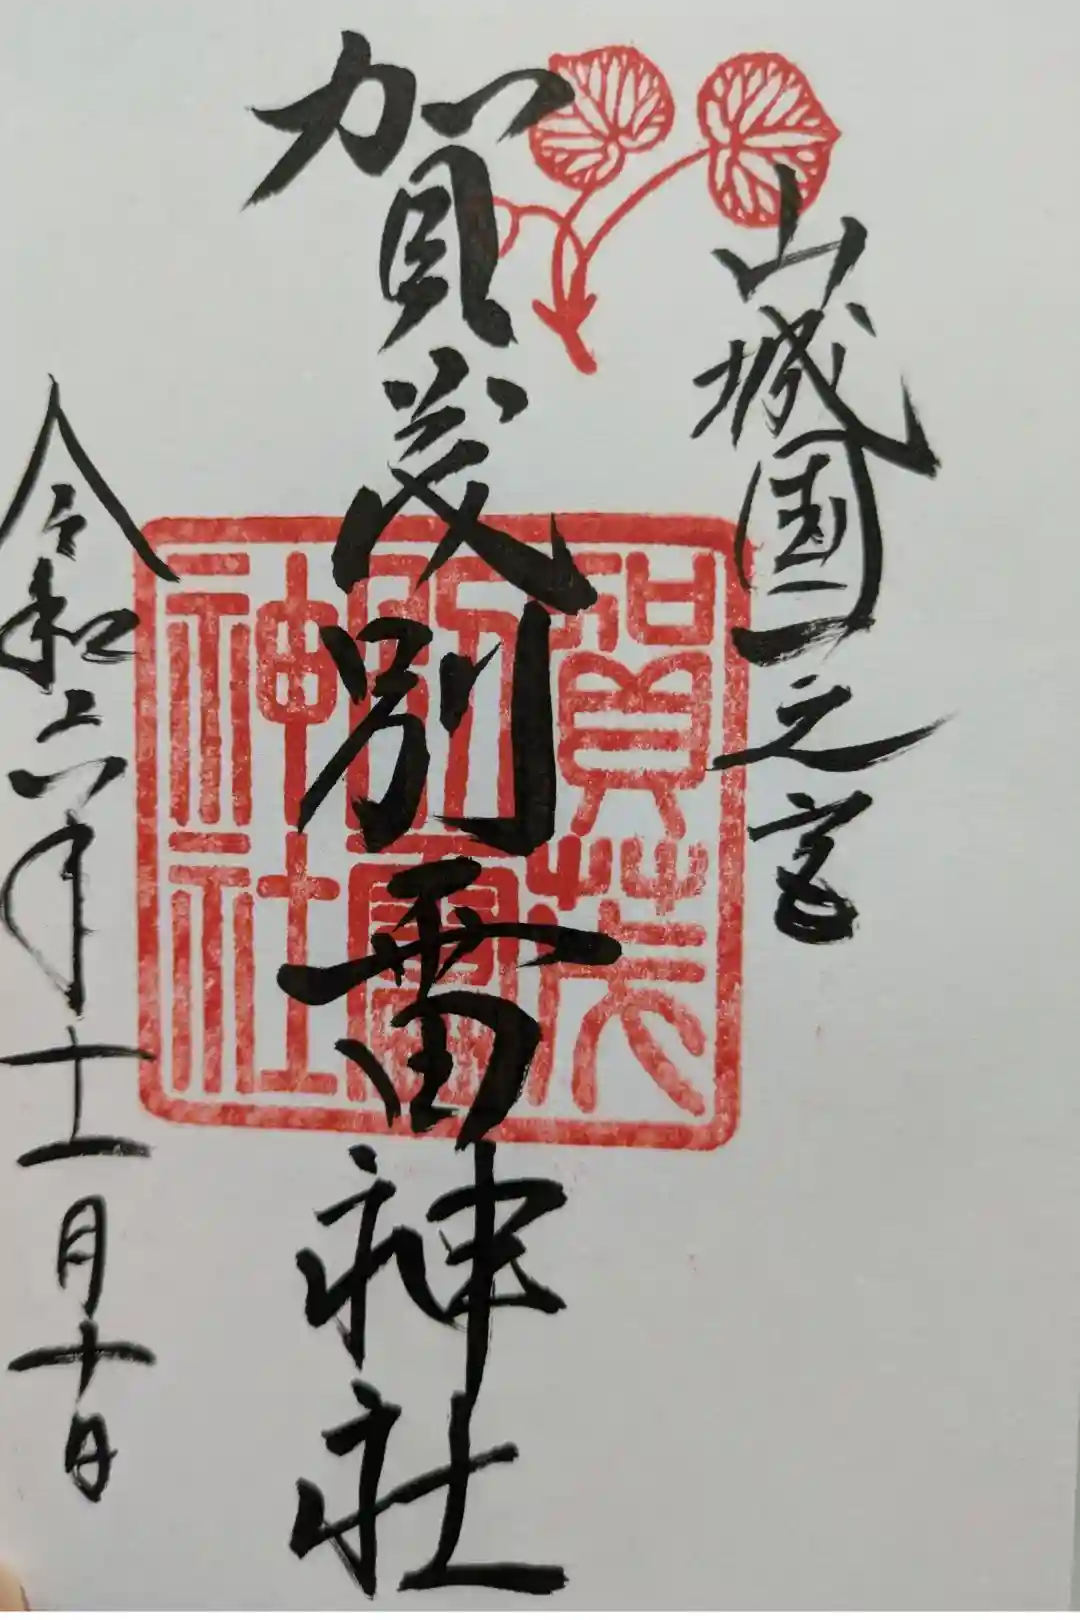 山城国一之宮
賀茂別雷神社
令和六年十一月十日
賀茂
別雷
神社